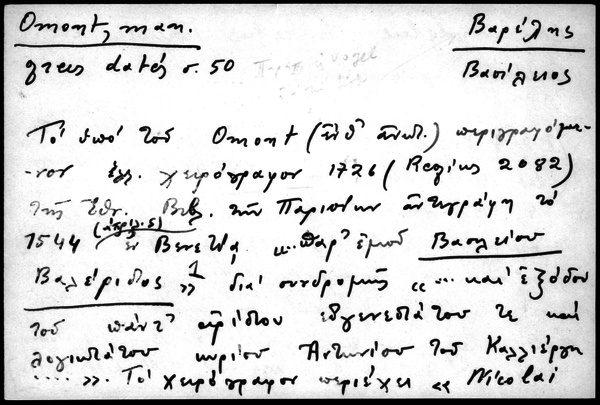 Omont, man. Βαρέλης
grecs datés σ. 50 Βασίλειος
Τό ὑπό τοῦ Omont (ἔνθ' ἀνωτ.) περιγραφόμε-
-νον ἑλλ. χειρόγραφον 1726 (Regius 2082)
τῆς Ἐθν. Βιβ. τῶν Παρισίων ἀντεγράφη τό
1544 (ἀπριλ. 5) ἐν Βενετίᾳ «...παρ' ἐμοῦ Βασιλείου
Βαλέριδος 1 » διά συνδρομῆς «... καί ἐξόδου
τοῦ πάντ' ἀρίστου εὐγενεστάτου τε καί
λογιωτάτου κυρίου Ἀντωνίου τοῦ Καλλιέργη
.... ». Τό χειρόγραφον περιέχει « Nicolai